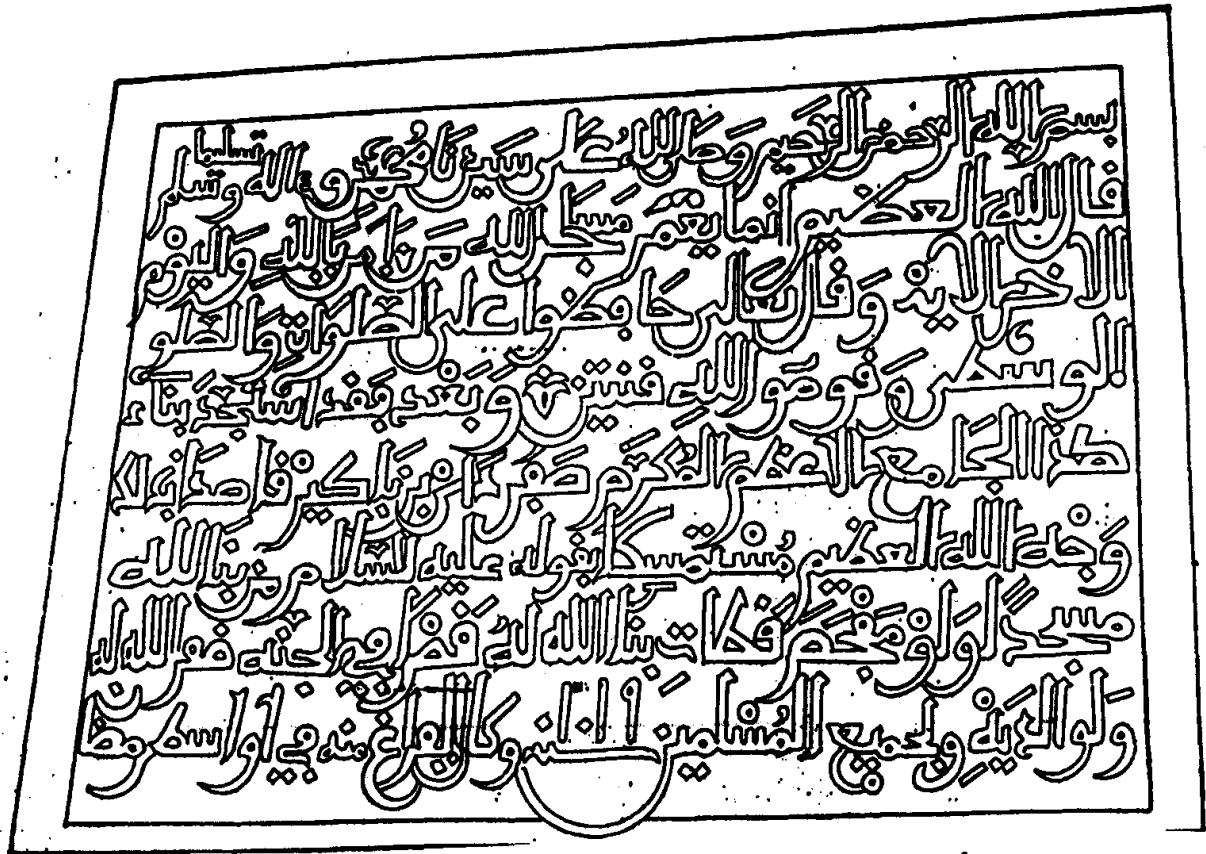 بسم الله الرحمن الرحيم وصلى الله على سيدنا محمد وعلى ءاله وسلم تسليما
قال الله العظيم إنما يعمر مساجد الله من ءامن بالله واليوم
الاخر الاية وقال تعالى حافظوا على الصلوات والصلوة
الوسطى وقوموا لله قنتين وبعد فقد استجد بناء
هذا المحل مع المكرم بن باكير قاصدا بذلك
وجه الله العظيم متمسكا بقوله عليه السلام من بنا لله
مسجدا ولو مفحص قطاة بنا الله له قصرا في الجنة فغفر الله له
ولوالديه ولجميع المسلمين ا سنة وكان الفراغ منه في اواسط رمضا